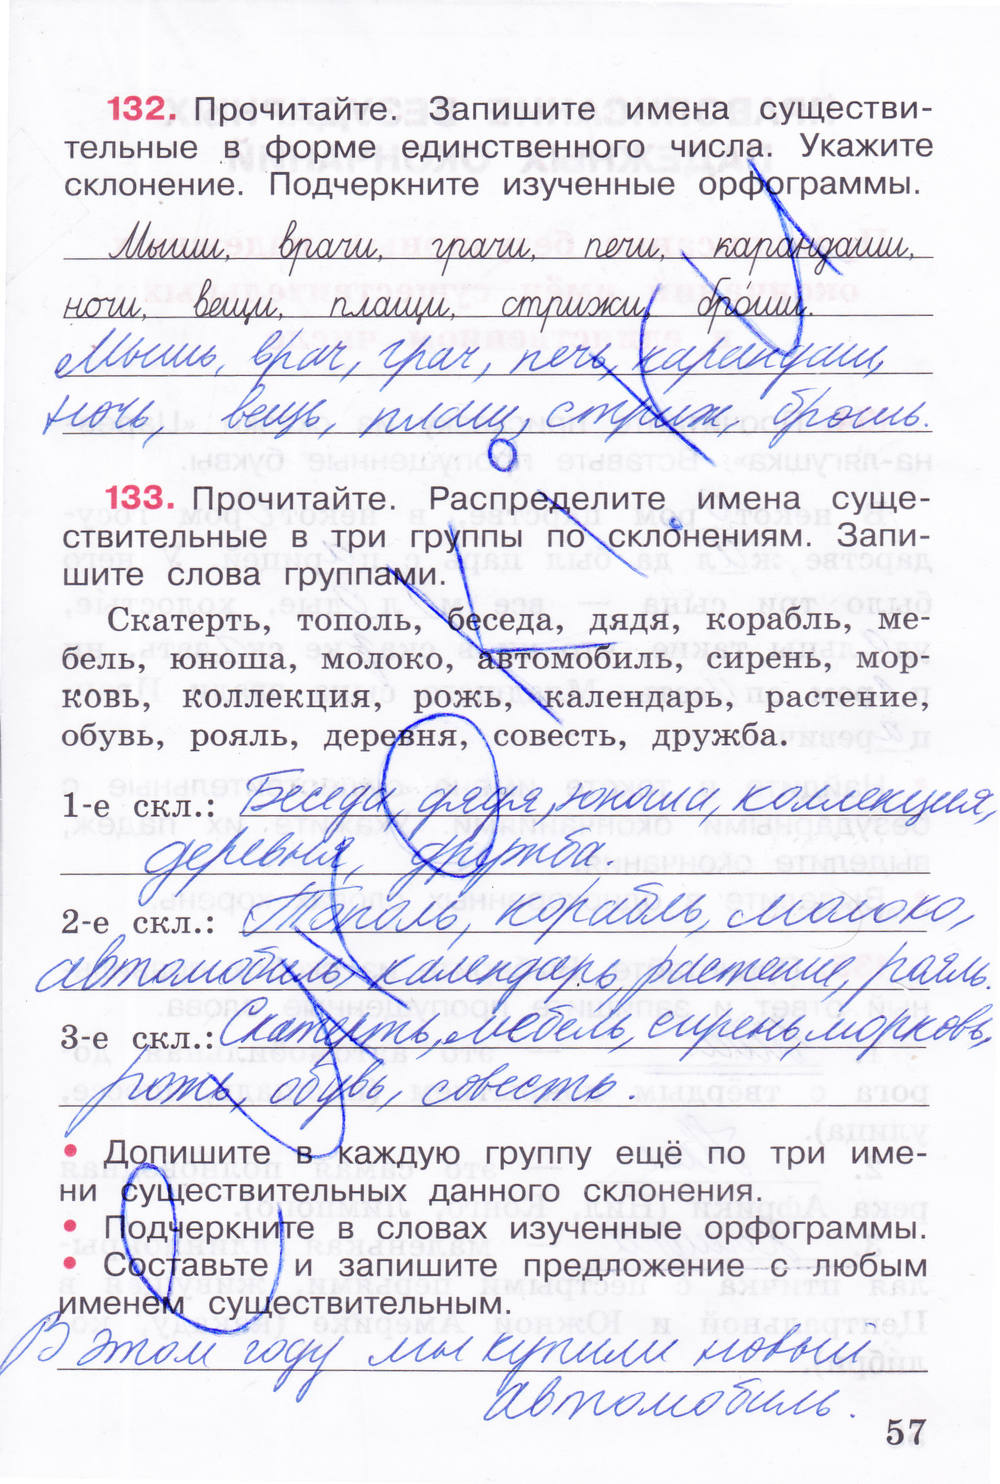 132. Прочитайте. Запишите имена существи-
тельные в форме единственного числа. Укажите
склонение. Подчеркните изученные орфограммы.
Мыши, врачи, грачи, печи, карандаши,
ночи, вещи, плащи, стрижи, броши.
Мышь, врач, грач, печь, карандаш,
ночь, вещь, плащ, стриж, брошь.
133. Прочитайте. Распределите имена суще-
ствительные в три группы по склонениям. Запи-
шите слова группами.
Скатерть, тополь, беседа, дядя, корабль, ме-
бель, юноша, молоко, автомобиль, сирень, мор-
ковь, коллекция, рожь, календарь, растение,
обувь, рояль, деревня, совесть, дружба.
1-е скл.: Беседа, дядя, юноша, коллекция,
деревня, дружба.
2-е скл.: Тополь, корабль, молоко,
автомобиль, календарь, растение, рояль.
3-е скл.: Скатерть, мебель, сирень, морковь,
рожь, обувь, совесть.
• Допишите в каждую группу ещё по три име-
ни существительных данного склонения.
• Подчеркните в словах изученные орфограммы.
• Составьте и запишите предложение с любым
именем существительным.
В этом году мы купили новый
автомобиль.
57